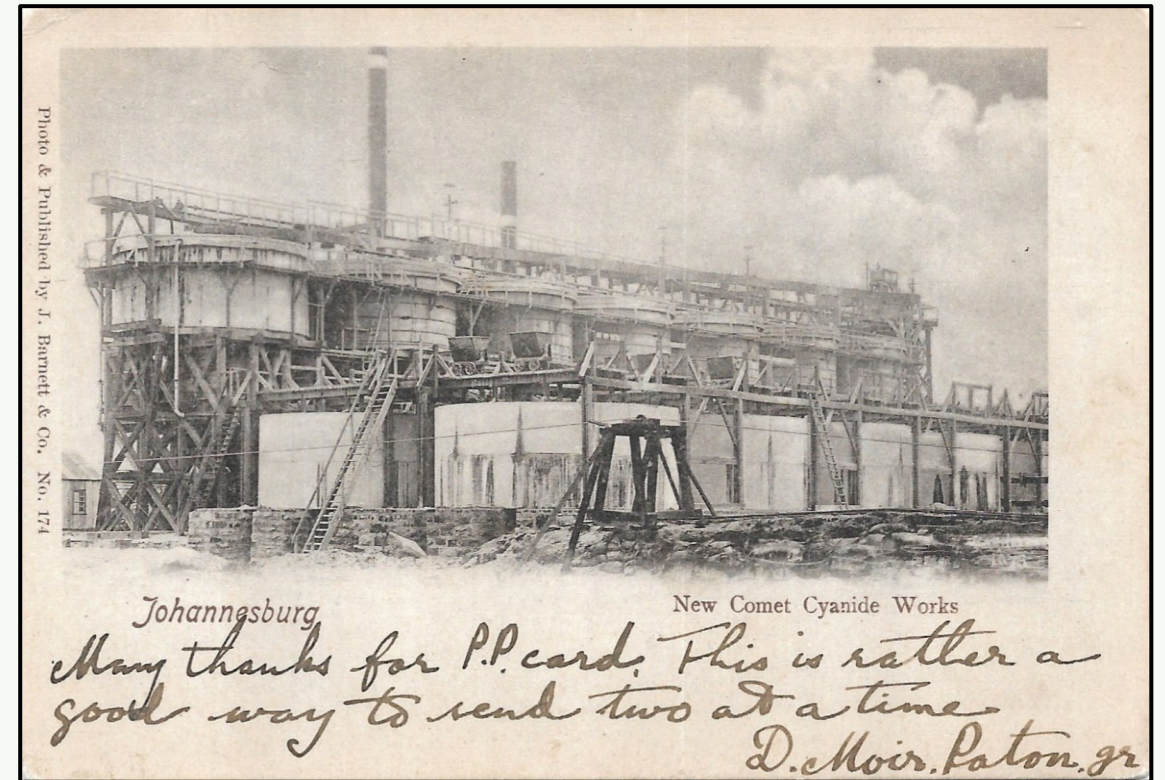 Photo & Published by J. Barnett & Co. No. 174
Johannesburg
New Comet Cyanide Works
Many thanks for P.P. card. This is rather a
good way to send two at a time
D. Moir. Paton. gr